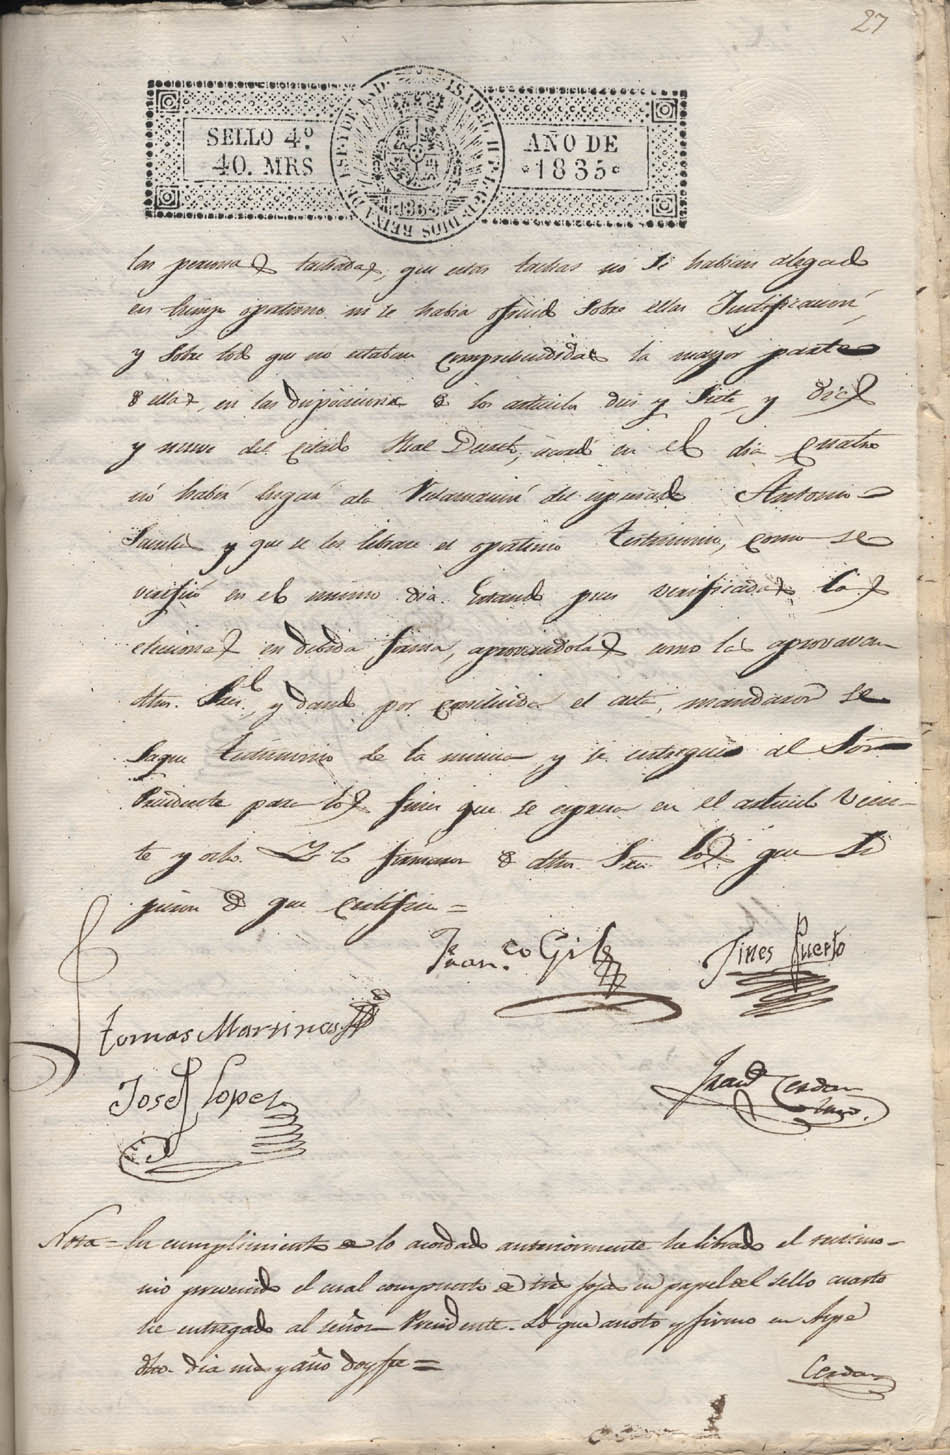 27
SELLO 4.º
40. MRS
ISABEL II P. L. G. DE DIOS REINA DE ESP. Y DE LAS YND.
1835
AÑO DE
1835
las personas tachadas, que estas tachas no se habian alegado
en tiempo oportuno ni se habia ofrecido sobre ellas Justificacion,
y sobre todo que no estaban comprendidas la mayor parte
de ellas, en las disposiciones de los articulos dies y siete, y diez
y nueve del citado Real Decreto, acordó en el dia cuatro
no haber lugar a la reclamacion del espresado Antonio
y que se les librase el oportuno testimonio, como se
verificó en el mismo dia. Estando pues verificadas las
elecciones en debida forma, aprovandolas como las aprovavan
dhos. Sres. y dando por concluida el acta, mandaron se
saque testimonio de la misma y se entregue al Sor.
Presidente para los fines que se espresa en el articulo vein-
te y ocho. Y lo firmaron de dhos Sres. los que su
pieron de que certifico =
Franco. Gil
Jines Puerto
tomas Martinez
Josef Lopez
Cerdan
Nota = En cumplimiento de lo acordado anteriormente he librado el testimo-
nio prevenido el cual compuesto de tres fojas en papel del sello cuarto
he entregado al señor Presidente. Lo que anoto y firmo en Aspe
dho. dia mes y año doy fe =
Cerdan